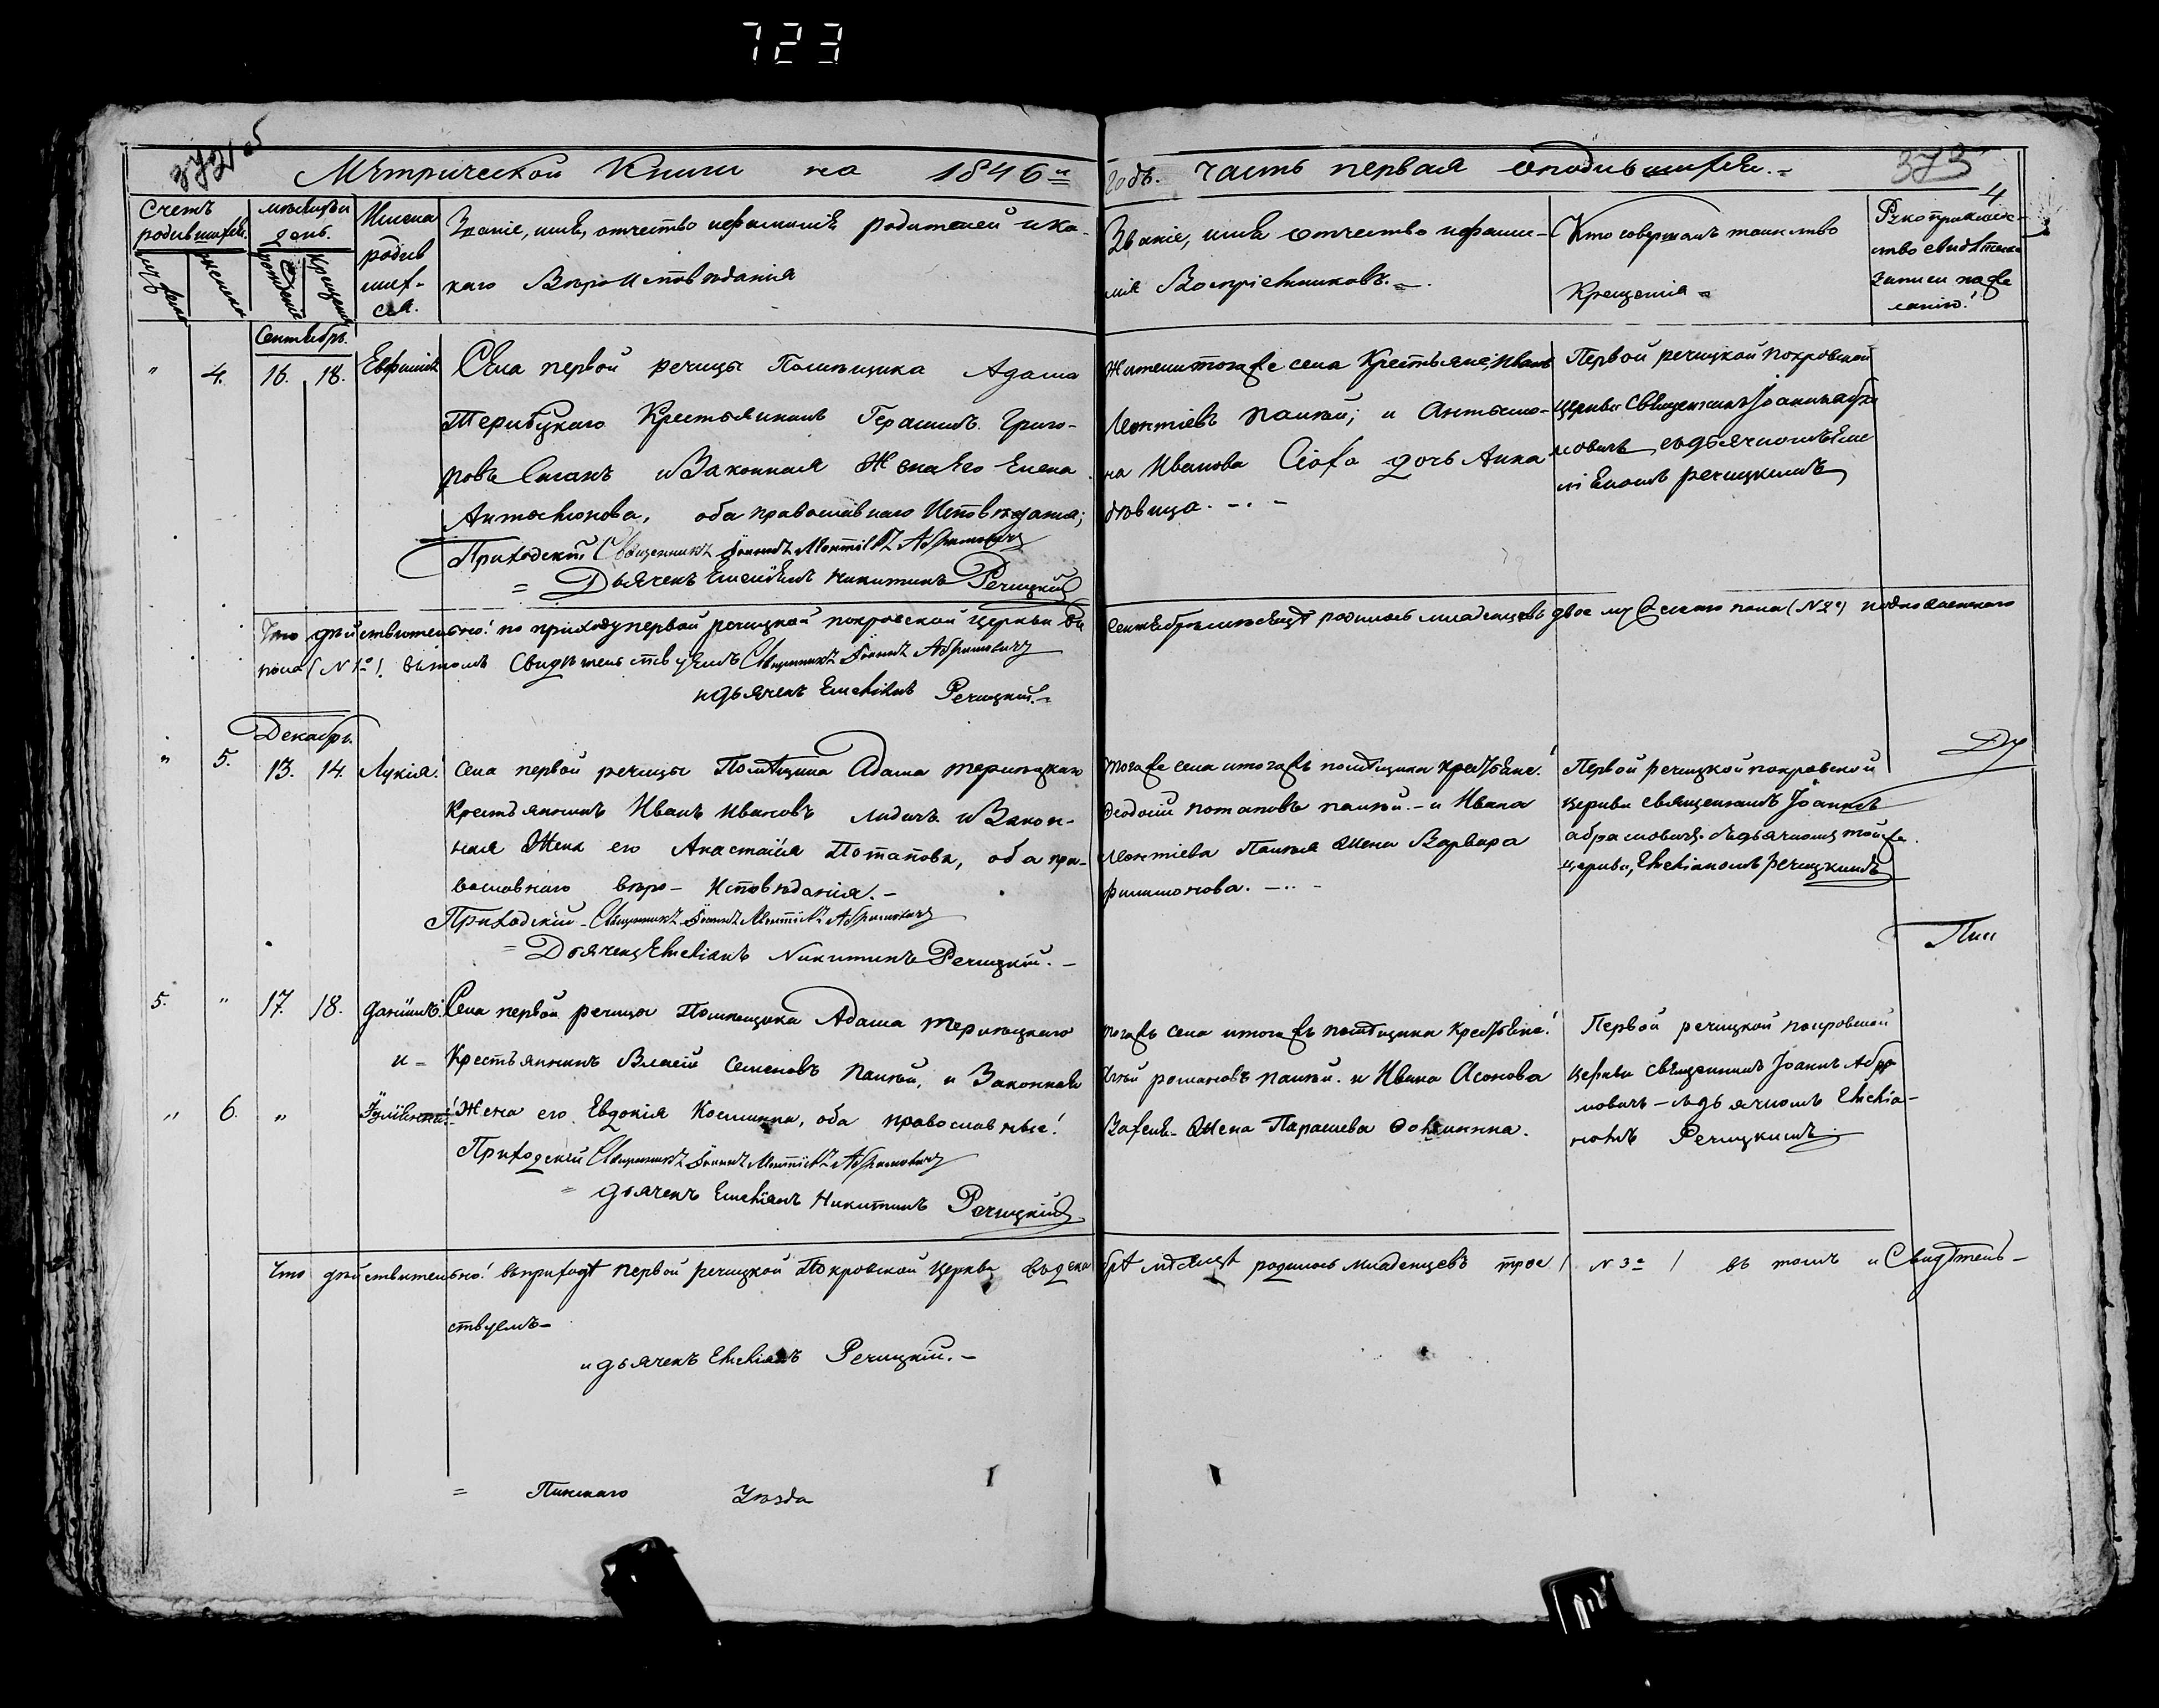 723
372 об
373
4
Метрической Книги на 1846й годъ. часть первая о родившихся.
Счетъ родившихся.
мужеска
женска
мѣсяцъ и день.
рожденіе
крещенія
Имена родив шихся.
Званіе, имя, отчество и фамилія родителей и ка-
каго Вѣро Исповѣданія
Званіе, имя отчество и фами-
лія Воспріемниковъ.
Кто совершалъ таинство
Крещенія
Рукоприкладство свидѣтелей записи по же ланію!
Сентябрь.
" 4. 16. 18.
Евфимія
Села первой речицы Помѣщика Адама
Терлѣцкаго Крестьянинъ Герасимъ Григо-
ровъ и Законная Жена Его Елена
Антонова, оба православнаго Исповѣданія;
Приходскій Священникъ Іоаннъ Леонтіевъ Абрамовичъ
Дьячекъ Емеліянъ Никитинъ Речицкій
Жители тогоже села Крестьяне, Иванъ
Леонтіевъ Панкой; и
на Иванова дочь Анна
дѣвица.
Первой речицкой покровской
церкви Священникъ Іоаннъ абра
мовичъ съ дьячкомъ Еме
ліяномъ речицкимъ
Что дѣйствительно! по приходу первой речицкой покровской церкви въ Сентябрѣ мѣсяцѣ родилось младенцевъ двое мужескаго пола (№2) подно женскаго
пола (№1) въ томъ Свидѣтельствуемъ Священникъ Іоаннъ Абрамовичъ
и дьячекъ Емеліянъ Речицкій.
Декабрь.
" 5. 13. 14. Лукія.
Села первой речицы Помѣщика Адама терлѣцкаго
Крестьянинъ Иванъ Ивановъ Лидичъ и Закон-
ная Жена его Анастасія Потапова, оба пра-
вославнаго вѣро- Исповѣданія.
Приходскій Священникъ Іоаннъ Леонтіевъ Абрамовичъ
Дьячекъ Емеліянъ Никитинъ Речицкій.
Тогоже села и тогожъ помѣщика крестьяне!
Ѳеодосій потаповъ панкой. и Ивана
Леонтіева Панкоя жена Варвара
филимонова.
Первой речицкой покровской
церкви священникъ Іоаннъ
абрамовичъ съ дьячкомъ тойже
церкви, Емеліяномъ речицкимъ
5. " 17. 18. даніилъ.
и
" 6. " Іуліянія!
Села первой речицы Помѣщика Адама терлѣцкаго
Крестьянинъ Власій Семеновъ Панкой, и Законная
Жена его Евдокія Космина, оба православные!
Приходскій Священникъ Іоаннъ Леонтіевъ Абрамовичъ
дьячекъ Емеліянъ Никитинъ Речицкій
тогожъ села и тогожъ помѣщика крестьяне!
романовъ панкой. и Ивана
жена Парасцева
Первой речицкой покровской
церкви священникъ Іоаннъ Абра
мовичъ съ дьячкомъ Емелія-
номъ Речицкимъ
Что дѣйствительно! въ приходѣ первой речицкой Покровской церкви въ декабрѣ мѣсяцѣ родилось младенцевъ трое / №3 / въ томъ и Свидѣтель-
ствуемъ
и дьячекъ Емеліянъ Речицкій.
Пинскаго Уѣзда